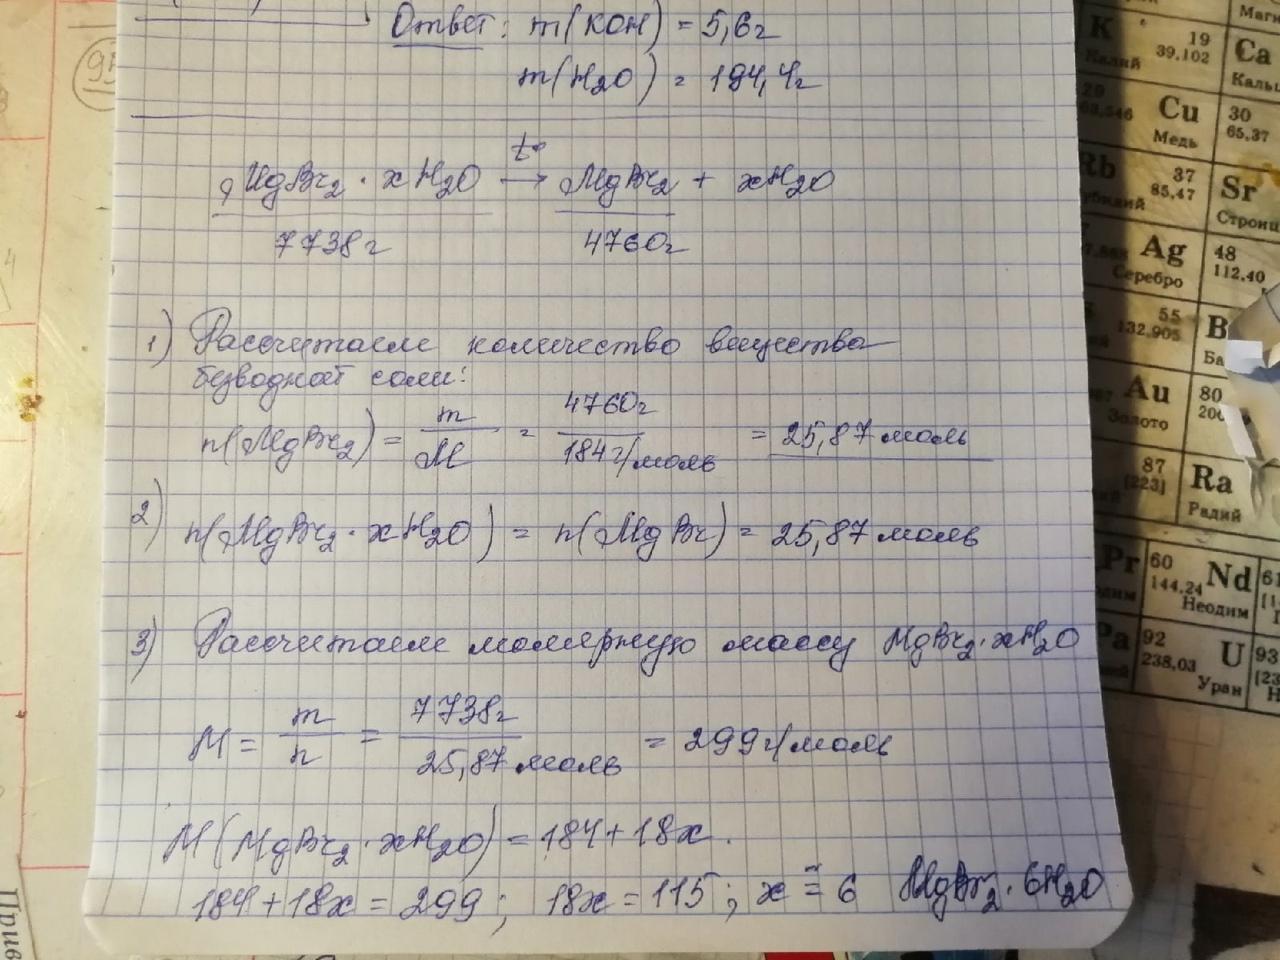 Ответ: m(KOH) = 5,6г
m(H2O) = 194,4г
MgBr2 · xH2O t° → MgBr2 + xH2O
7738г 4760г
1) Рассчитаем количество вещества
безводной соли:
n(MgBr2) = m/M = 4760г/184г/моль = 25,87 моль
2) n(MgBr2 · xH2O) = n(MgBr) = 25,87 моль
3) Рассчитаем молярную массу MgBr2·xH2O
M = m/n = 7738г/25,87 моль = 299г/моль
M(MgBr2·xH2O) = 184+18x.
184+18x = 299; 18x = 115; x ≈ 6 MgBr2·6H2O
K 19
Калий 39,102
Ca
Cu
Медь
30
65,37
37
85,47
Sr
Ag
Серебро
48
112,40
55
132,905
Au
Золото
80
87
[223]
Ra
Радий
Pr
60
144,24 Nd
Неодим
61
92
238,03 U
Уран
93